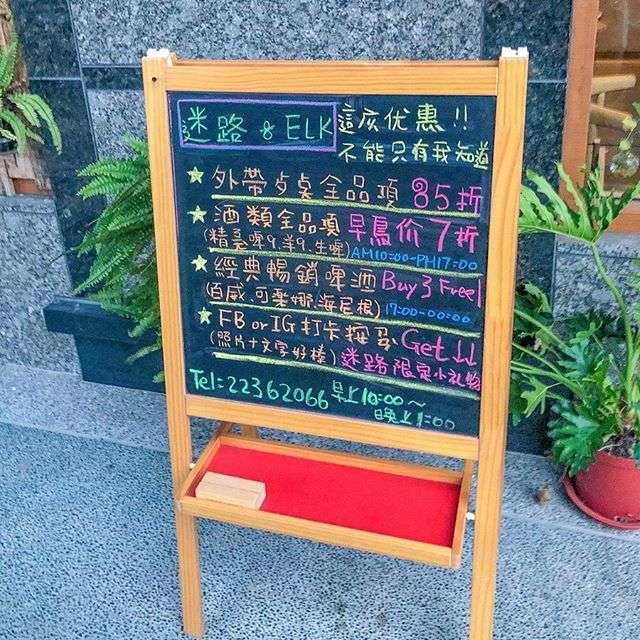 迷路 & ELK
這次优惠!!
不能只有我知道
外帶 桌全品項 85折
酒類全品項 早鳥价 7折
(精 啤9.羊9.生啤) AM10:00-PM17:00
經典暢銷啤酒 Buy 3 Free 1
(百威.可樂娜.海尼根) 17:00-00:00
FB or IG 打卡按 Get↓↓
(照片+文字好棒) 迷路限定小礼物
Tel:22362066 早上10:00~
晚上1:00